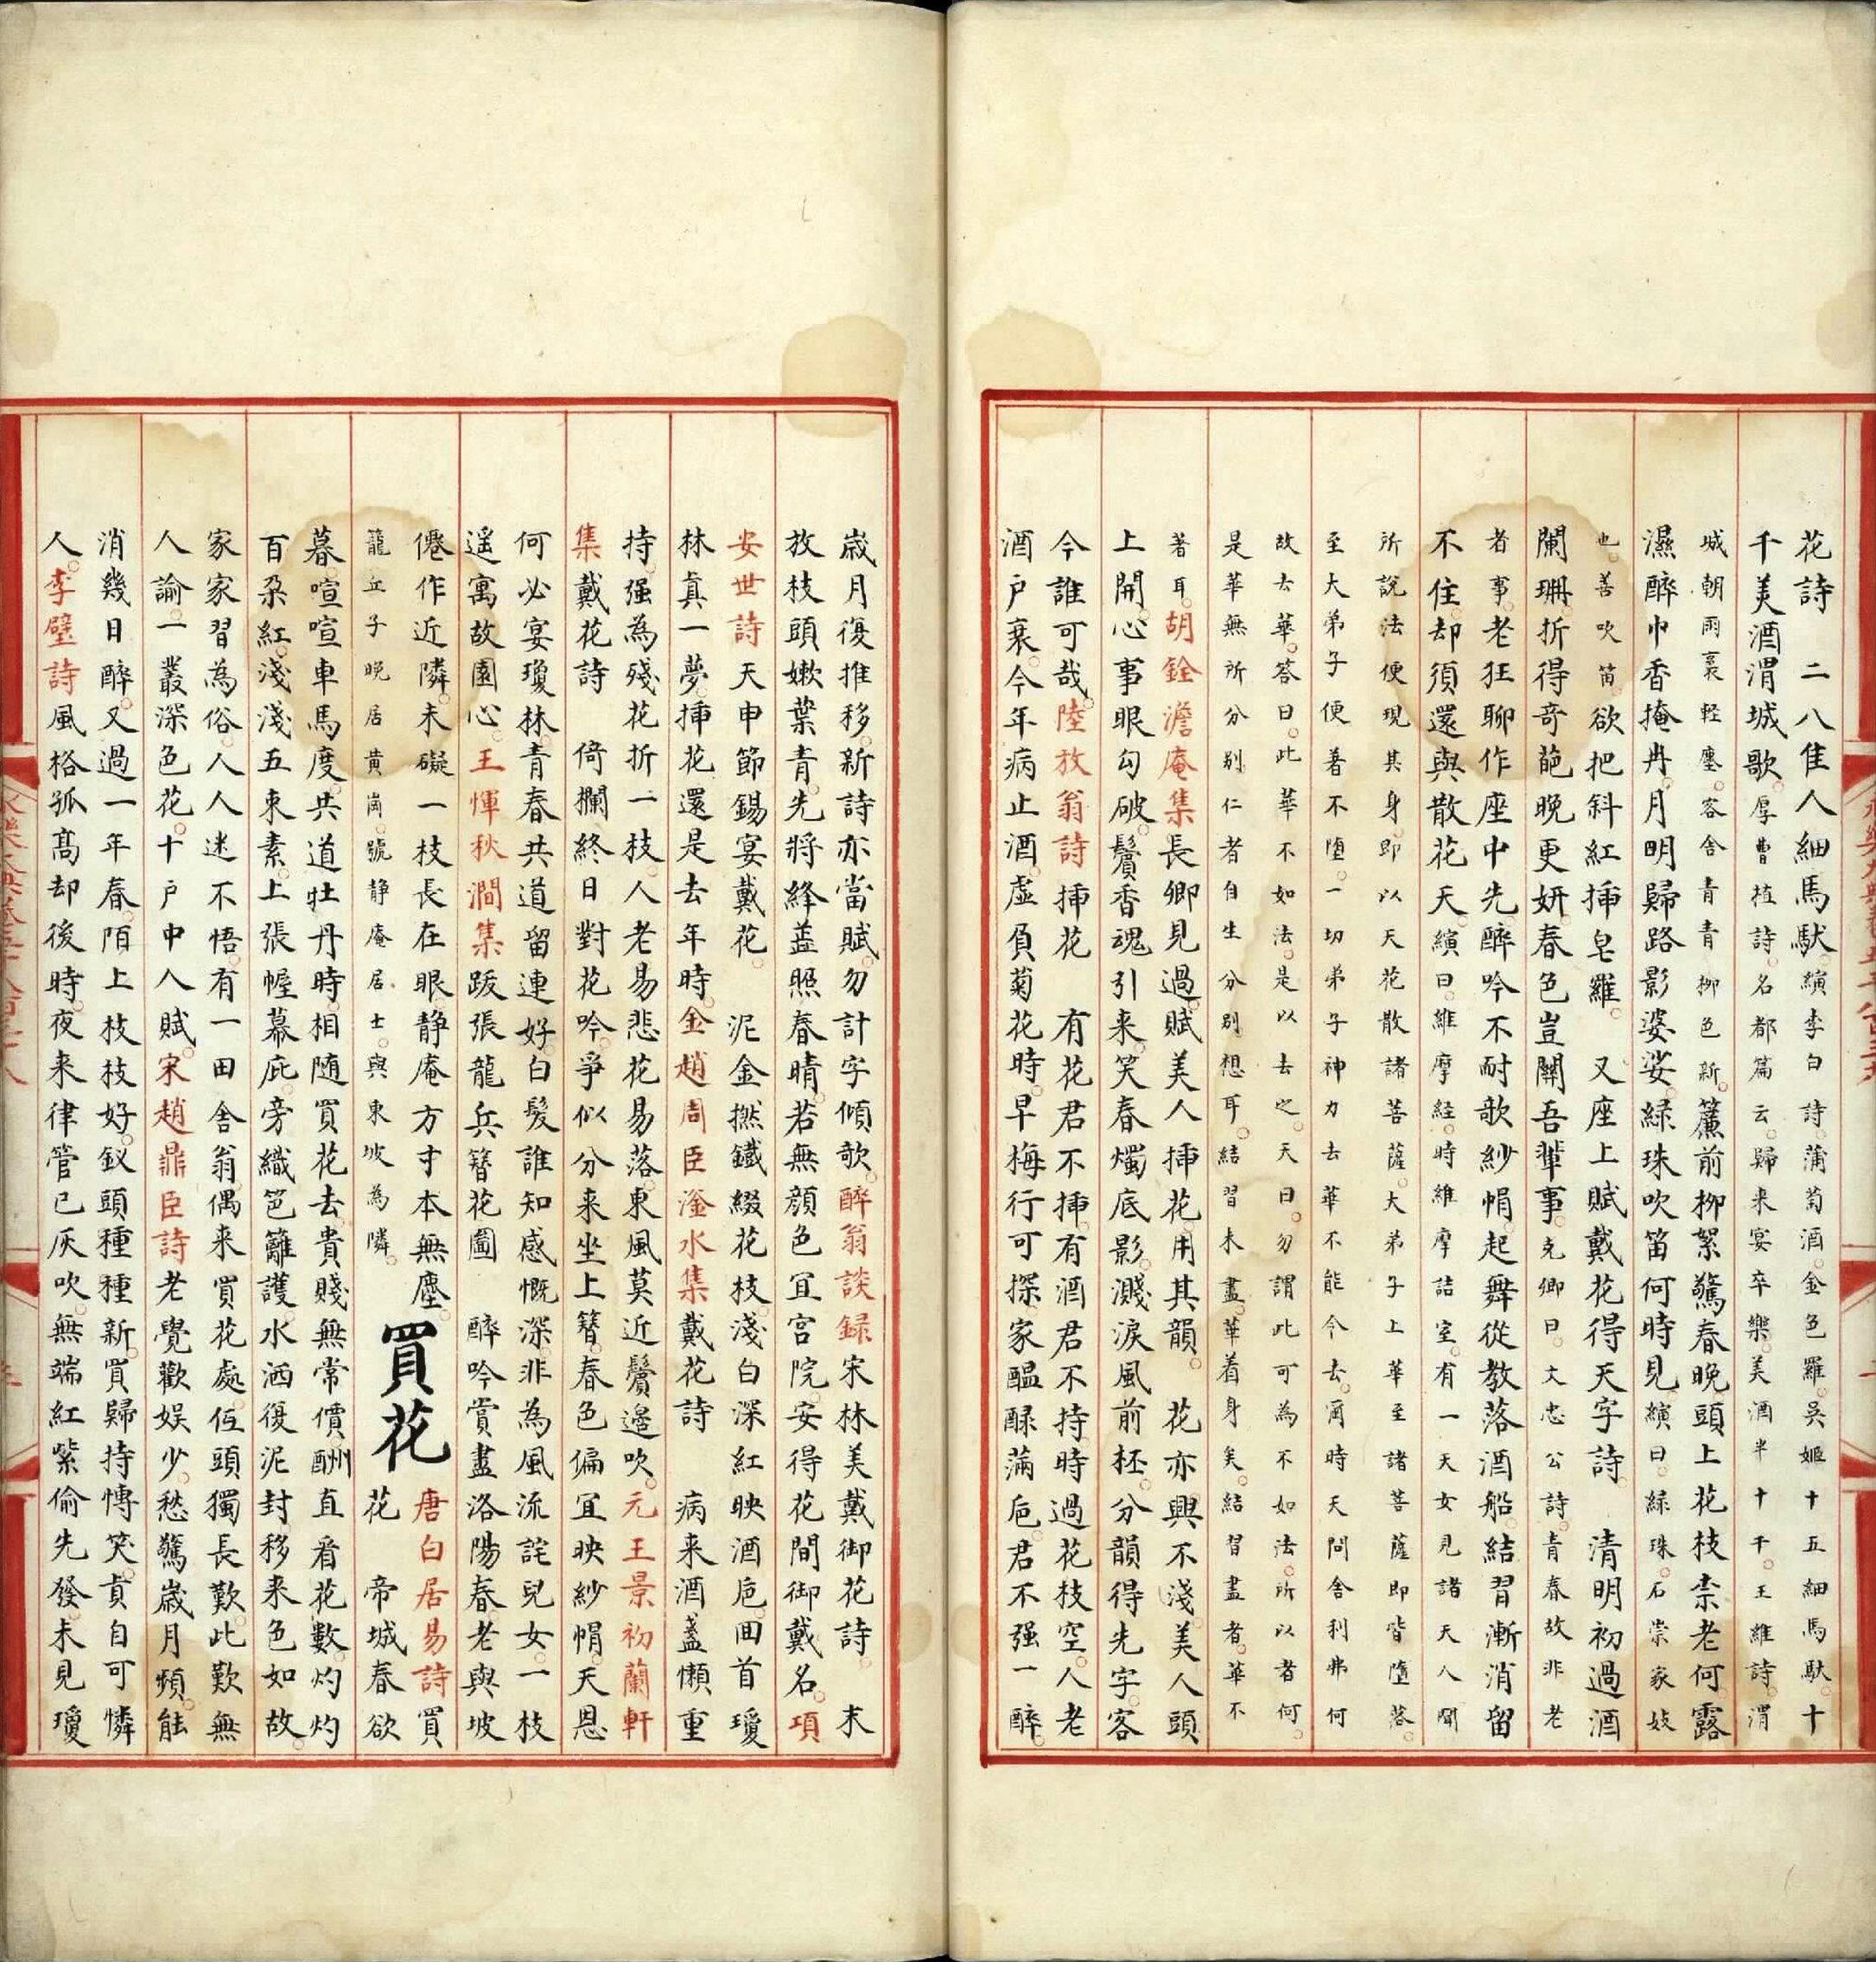 花詩　二八佳人細馬馱續李白詩蒲萄酒金色羅吳姬十五細馬馱十
千美酒渭城歌厚曹植詩名都篇云歸来宴卒樂美酒半十千王維詩渭
城朝雨裛輕塵客舍青青柳色新簾前柳絮驚春晚頭上花枝柰老何露
濕醉巾香掩冉月明歸路影婆娑緑珠吹笛何時見縯曰緑珠石崇家妓
也善吹笛欲把斜紅揷皂羅　又座上賦戴花得天字詩　清明初過酒
闌珊折得奇葩晚更妍春色豈關吾輩事克卿曰文忠公詩青春故非老
者事老狂聊作座中先醉吟不耐歌紗帽起舞從教落酒船結習漸消留
不住却須還與散花天縯曰維摩經時維摩詰室有一天女見諸天人聞
所說法便現其身即以天花散諸菩薩大弟子上華至諸菩薩即皆墮落
至大弟子便著不墮一切弟子神力去華不能令去爾時天問舍利弗何
故去華荅曰此華不如法是以去之天曰勿謂此可為不如法所以者何
是華無所分别仁者自生分别想耳結習未盡華着身矣結習盡者華不
著耳胡銓澹庵集長卿見過賦美人揷花用其韻　花亦興不淺美人頭
上開心事眼勾破鬢香魂引来笑春燭底影濺淚風前杯分韻得先字客
今誰可哉陸放翁詩揷花　有花君不揷有酒君不持時過花枝空人老
酒戶衰今年病止酒虛負菊花時早梅行可探家醞醁滿巵君不强一醉
歲月復推移新詩亦當賦勿計字傾欹醉翁談録宋林美戴御花詩　末
放枝頭嫰葉青先將絳蓋照春晴若無顔色宜宮院安得花間御戴名項
安世詩天申節錫宴戴花　泥金撚鐵綴花枝淺白深紅映酒巵囬首瓊
林真一夢揷花還是去年時金趙周臣滏水集戴花詩　病来酒盞懶重
持强為殘花折一枝人老易悲花易落東風莫近鬢邉吹元王景初蘭軒
集戴花詩　倚欄終日對花吟爭似分来坐上簪春色偏宜映紗帽天恩
何必宴瓊林青春共道留連好白髮誰知感慨深非為風流詫兒女一枝
遥寓故園心王惲秋澗集跋張龍兵簪花圖　醉吟賞盡洛陽春老與坡
僊作近隣未礙一枝長在眼静庵方寸本無塵
龍丘子晚居黄崗號静庵居士與東坡為隣
買花
唐白居易詩買
花　帝城春欲
暮喧喧車馬度共道牡丹時相随買花去貴賤無常價酬直看花數灼灼
百朶紅淺淺五束素上張幄幕庇旁織笆籬護水洒復泥封移来色如故
家家習為俗人人迷不悟有一田舍翁偶来買花處低頭獨長歎此歎無
人諭一叢深色花十戶中人賦宋趙鼎臣詩老覺歡娱少愁驚歲月頻能
消幾日醉又過一年春陌上枝枝好釵頭種種新買歸持慱笑貞自可憐
人李壁詩風格孤髙却後時夜来律管已灰吹無端紅紫偷先發未見瓊